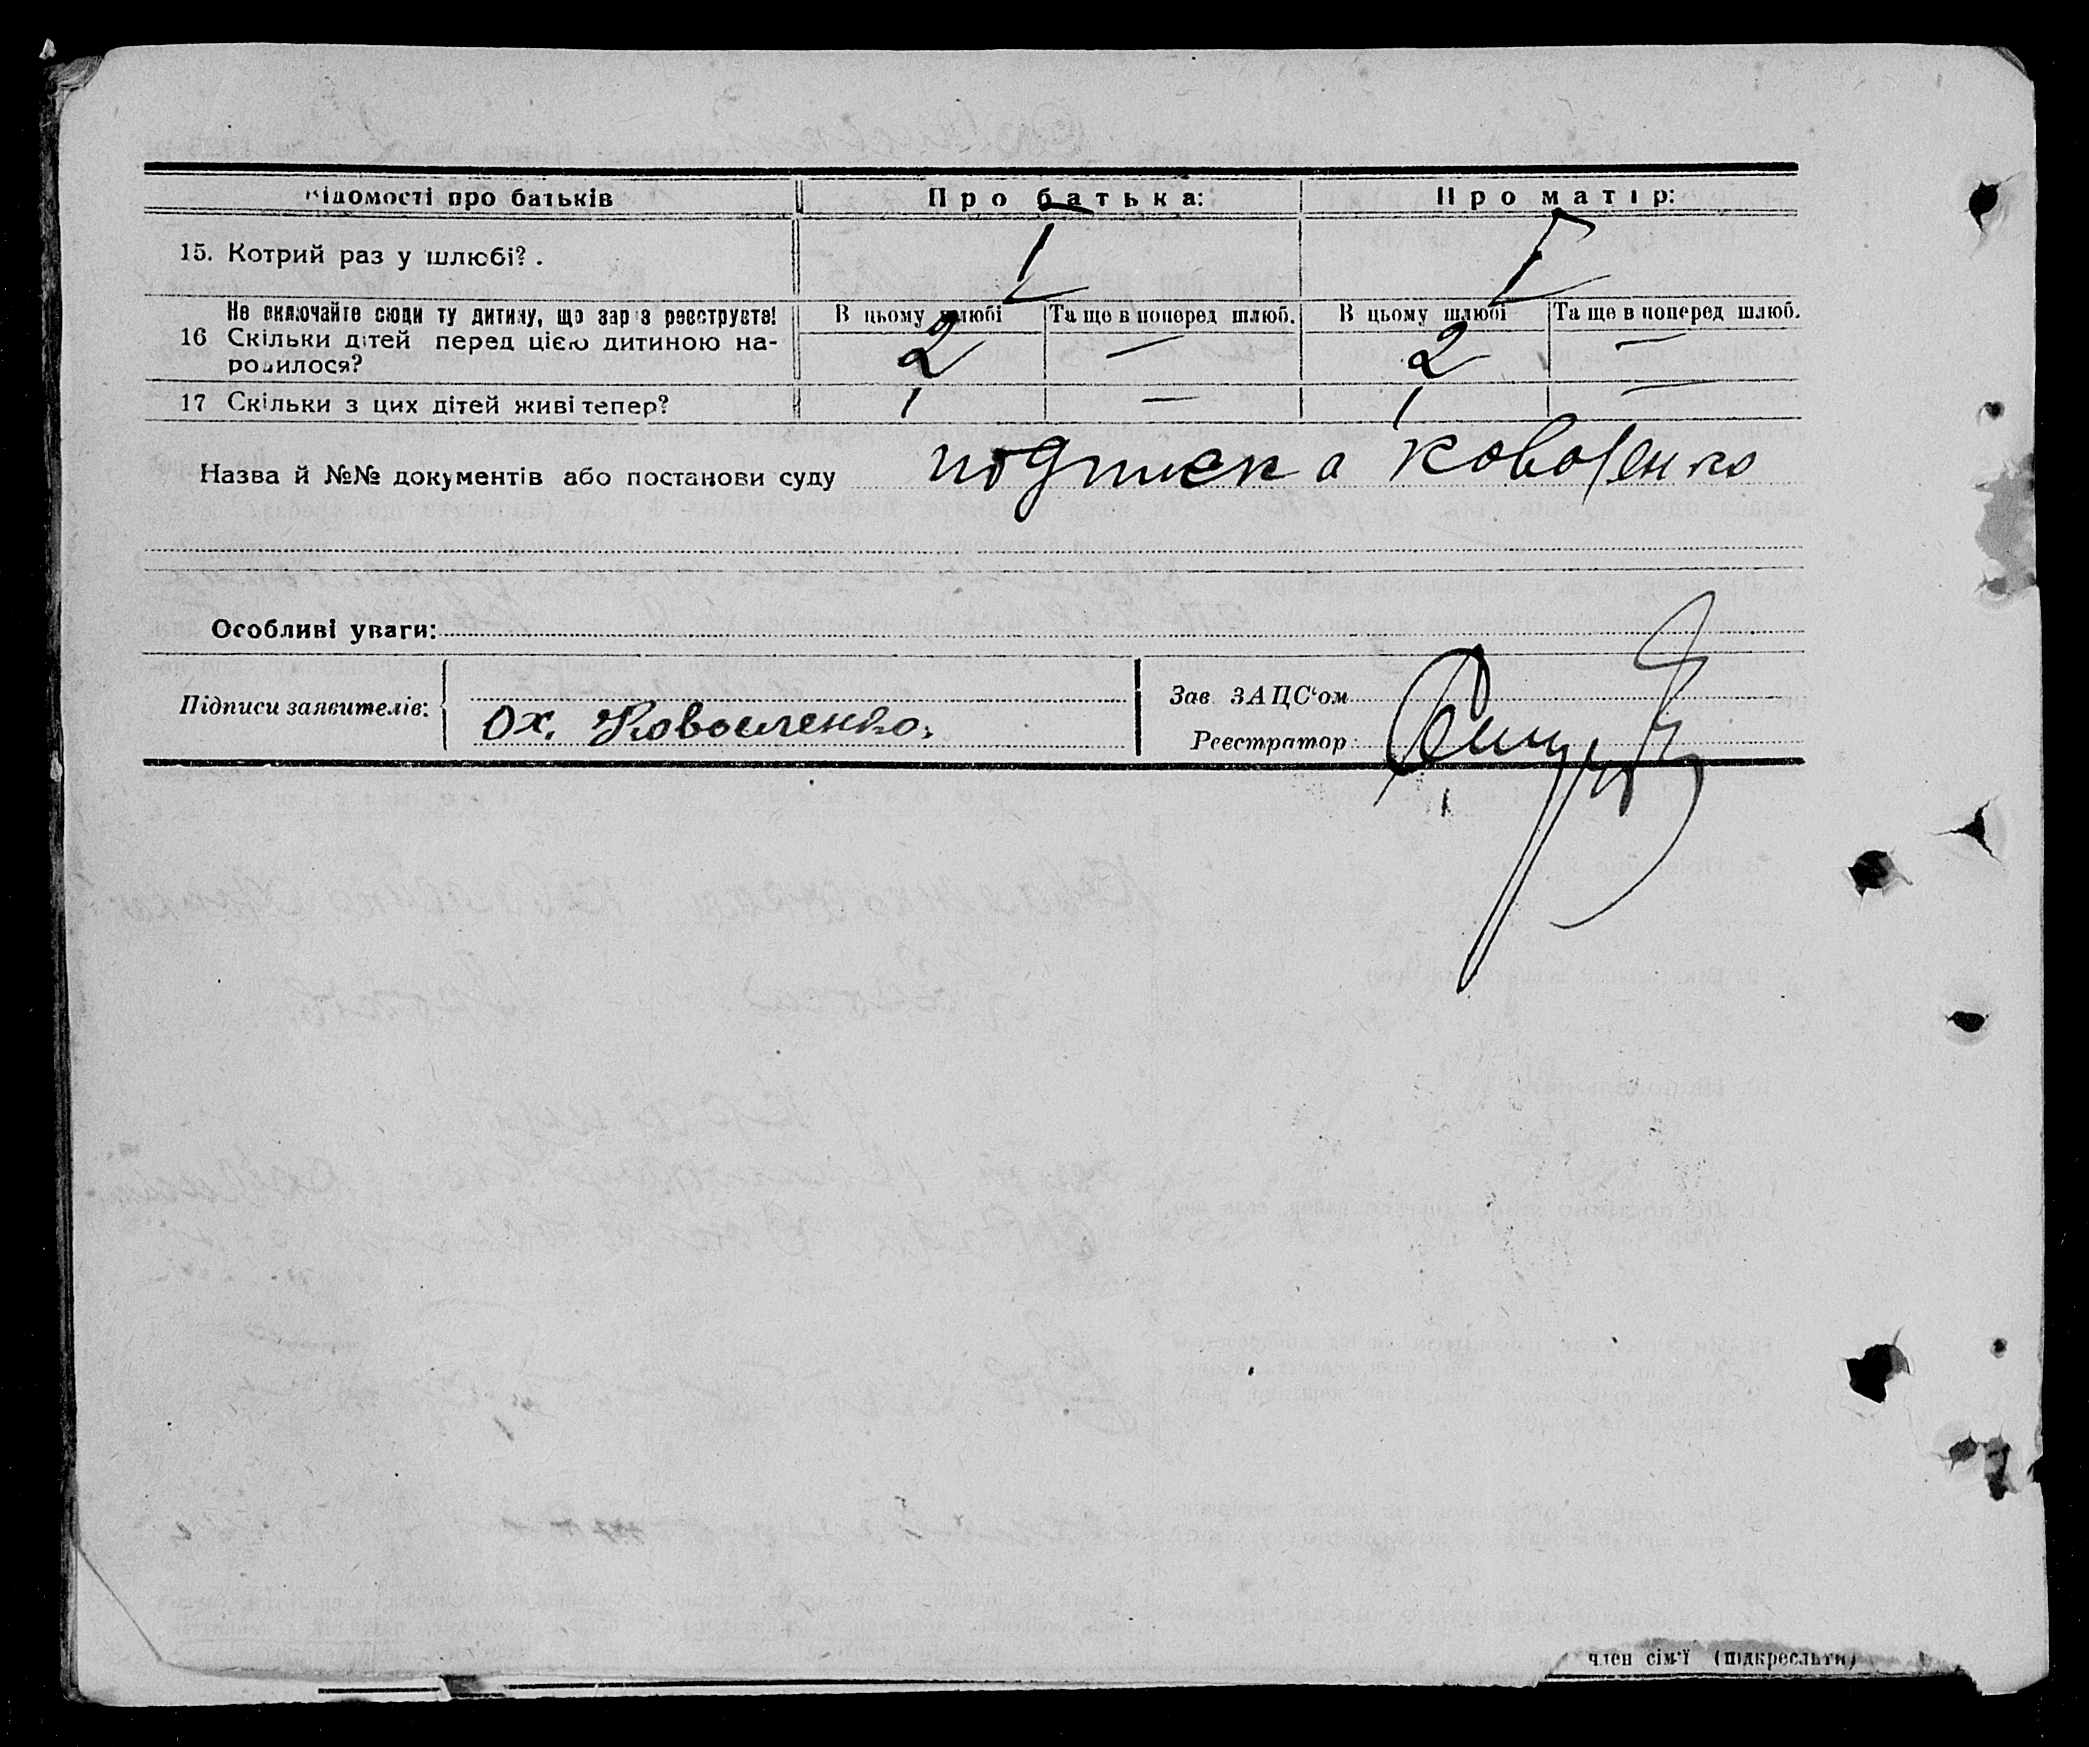 Відомості про батьків Про батька: Про матір:
15. Котрий раз у шлюбі? . I I
Не включайте сюди ту дитину, що зараз реєструєте! В цьому шлюбі Та ще в поперед шлюб. В цьому шлюбі Та ще в поперед шлюб.
16 Скільки дітей перед цією дитиною на- 2 — 2 —
родилося?
17 Скільки з цих дітей живі тепер? 1 — 1 —
Назва й №№ документів або постанови суду подписка
Особливі уваги:
Підписи заявителів: Ох. Коваленко.
Зав ЗАЦС‘ом
Реєстратор:
член сім'ї (підкресльти)